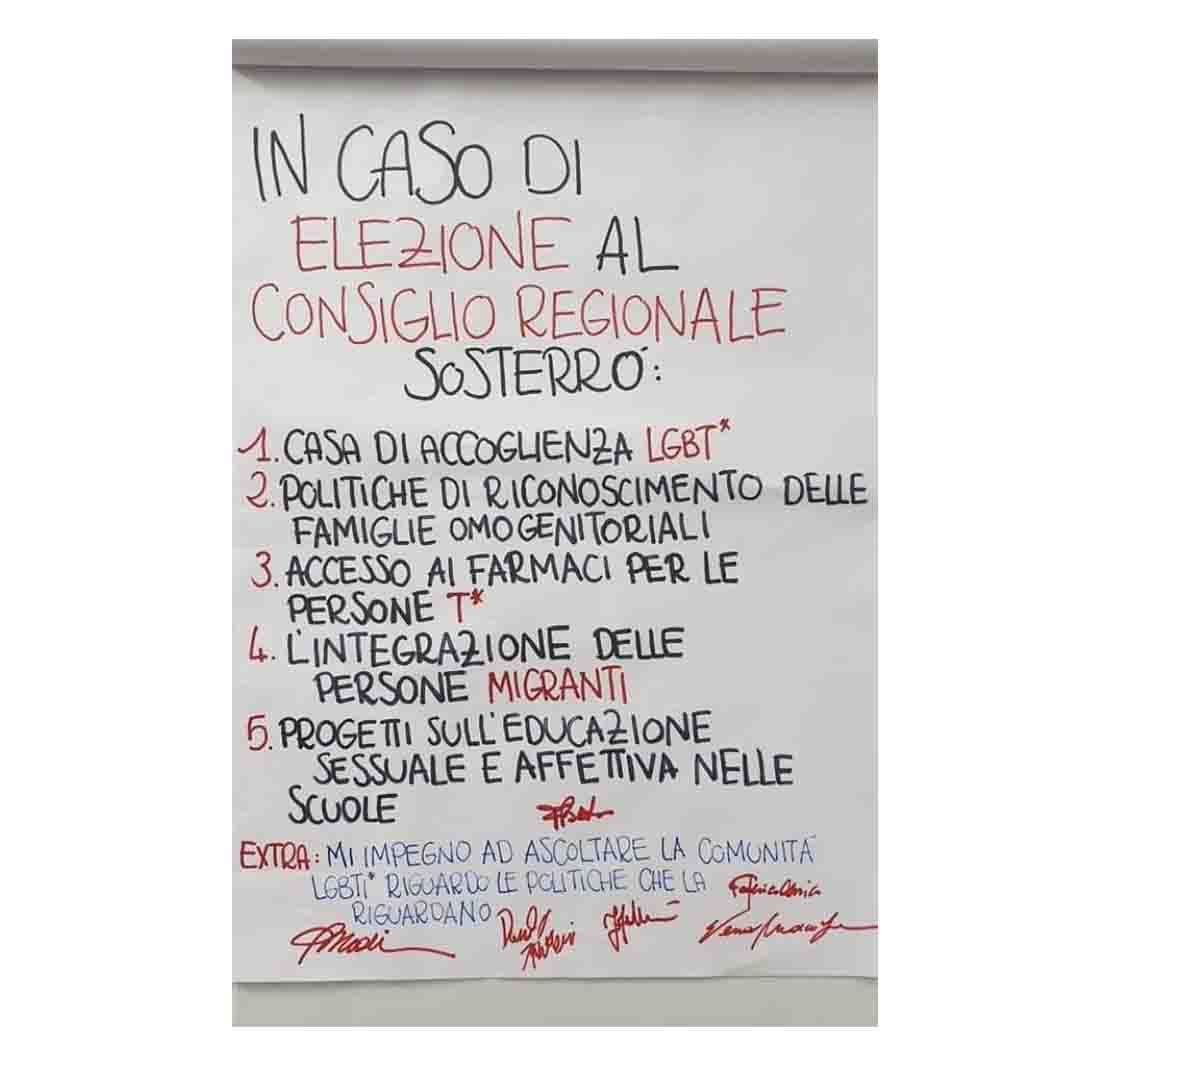 IN CASO DI
ELEZIONE AL
CONSIGLIO REGIONALE
SOSTERRÓ:
1. CASA DI ACCOGLIENZA LGBT*
2. POLITICHE DI RICONOSCIMENTO DELLE
FAMIGLIE OMOGENITORIALI
3. ACCESSO AI FARMACI PER LE
PERSONE T*
4. L'INTEGRAZIONE DELLE
PERSONE MIGRANTI
5. PROGETTI SULL'EDUCAZIONE
SESSUALE E AFFETTIVA NELLE
SCUOLE
EXTRA: MI IMPEGNO AD ASCOLTARE LA COMUNITÁ
LGBTI* RIGUARDO LE POLITICHE CHE LA
RIGUARDANO